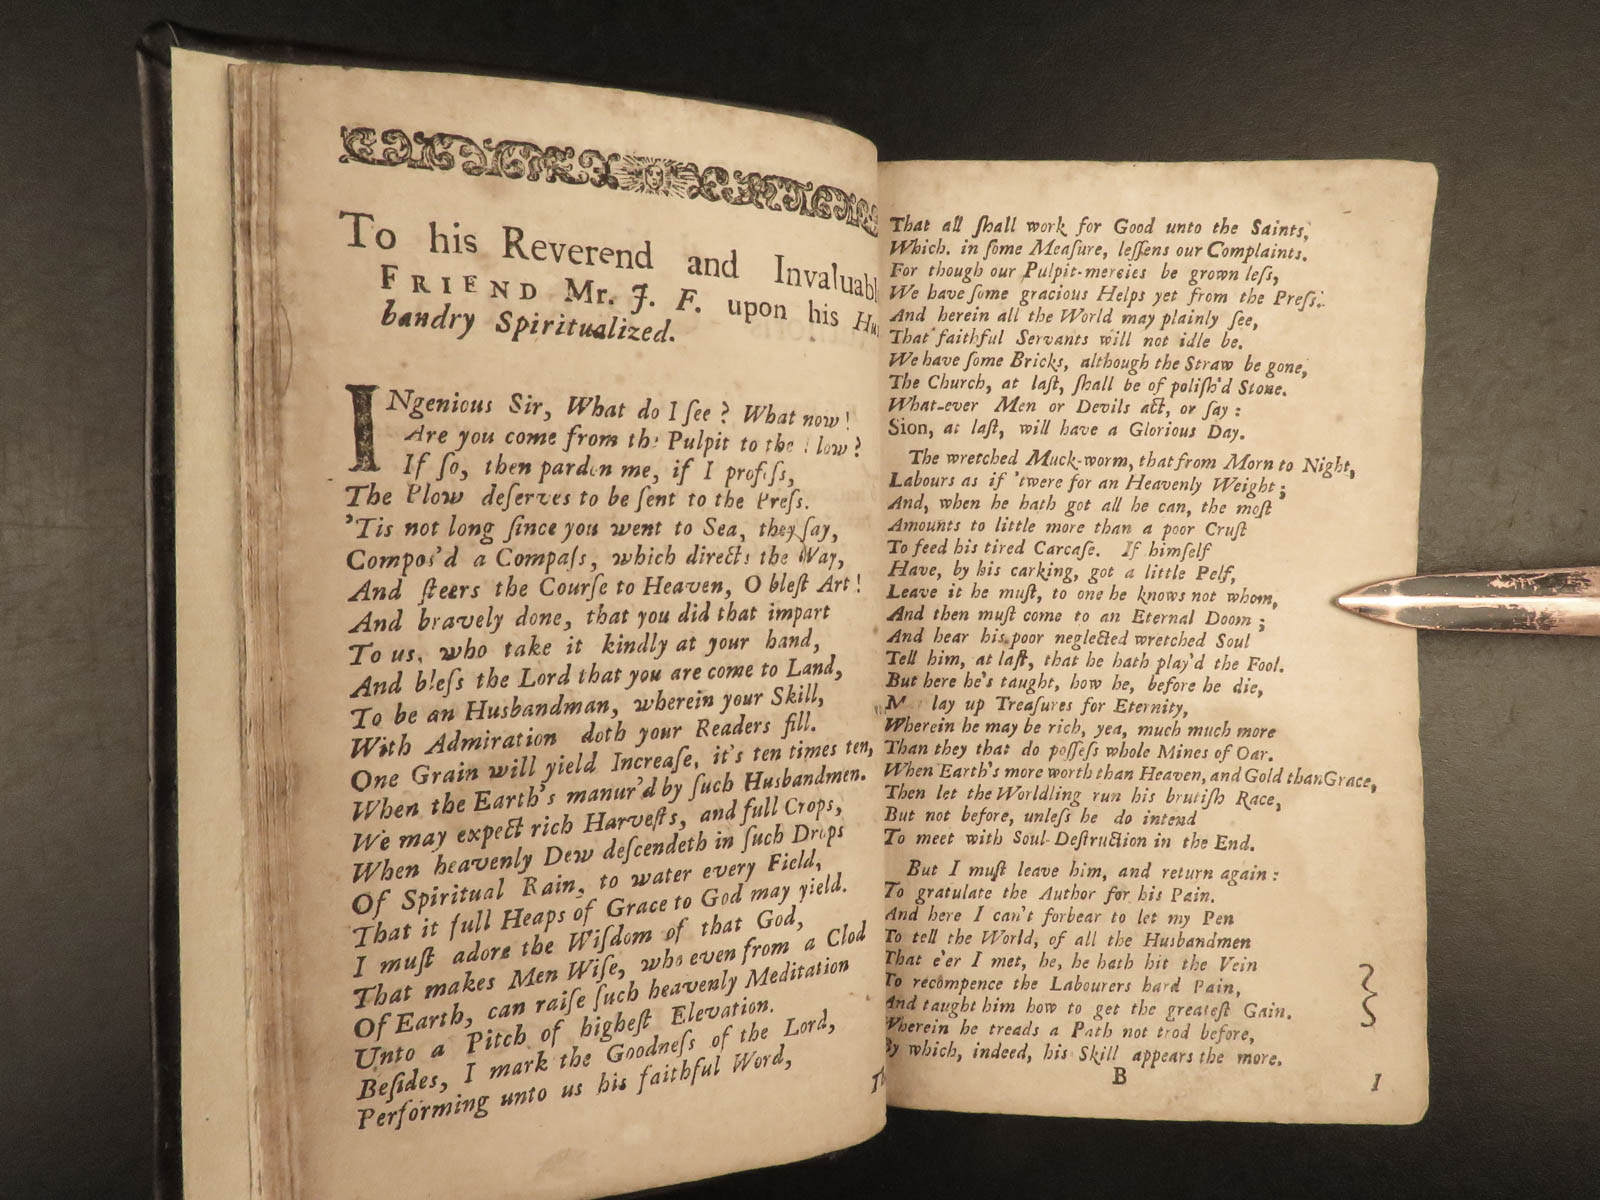 To his Reverend and Invaluabl
FRIEND Mr. J. F. upon his Hu
bandry Spiritualized.
INgenious Sir, What do I ſee? What now!
Are you come from the Pulpit to the low?
If ſo, then parden me, if I profeſs,
The Plow deſerves to be ſent to the Preſs.
'Tis not long ſince you went to Sea, they ſay,
Compos'd a Compaſs, which directs the Way,
And ſteers the Courſe to Heaven, O bleſt Art!
And bravely done, that you did that impart
To us, who take it kindly at your hand,
And bleſs the Lord that you are come to Land,
To be an Husbandman, wherein your Skill,
With Admiration doth your Readers fill.
One Grain will yield Increaſe, it's ten times ten,
When the Earth's manur'd by ſuch Husbandmen.
We may expect rich Harveſts, and full Crops,
When heavenly Dew deſcendeth in ſuch Drops
Of Spiritual Rain, to water every Field,
That it full Heaps of Grace to God may yield.
I muſt adore the Wiſdom of that God,
That makes Men Wiſe, who even from a Clod
Of Earth, can raiſe ſuch heavenly Meditation
Unto a Pitch of higheſt Elevation.
Beſides, I mark the Goodneſs of the Lord,
Performing unto us his faithful Word,
Th
That all ſhall work for Good unto the Saints,
Which. in ſome Meaſure, leſſens our Complaints.
For though our Pulpit-mercies be grown leſs,
We have ſome gracious Helps yet from the Preſs.
And herein all the World may plainly ſee,
That faithful Servants will not idle be.
We have ſome Bricks, although the Straw be gone,
The Church, at laſt, ſhall be of poliſh'd Stone.
What-ever Men or Devils act, or ſay:
Sion, at laſt, will have a Glorious Day.
The wretched Muck-worm, that from Morn to Night,
Labours as if 'twere for an Heavenly Weight;
And, when he hath got all he can, the moſt
Amounts to little more than a poor Cruſt
To feed his tired Carcaſe. If himſelf
Have, by his carking, got a little Pelf,
Leave it he muſt, to one he knows not whom,
And then muſt come to an Eternal Doom;
And hear his poor neglected wretched Soul
Tell him, at laſt, that he hath play'd the Fool.
But here he's taught, how he, before he die,
M lay up Treaſures for Eternity,
Wherein he may be rich, yea, much much more
Than they that do poſſeſs whole Mines of Oar.
When Earth's more worth than Heaven, and Gold than Grace,
Then let the Worldling run his brutiſh Race,
But not before, unleſs he do intend
To meet with Soul-Deſtruction in the End.
But I muſt leave him, and return again:
To gratulate the Author for his Pain.
And here I can't forbear to let my Pen
To tell the World, of all the Husbandmen
That e'er I met, he, he hath hit the Vein
To recompence the Labourers hard Pain,
And taught him how to get the greateſt Gain.
Wherein he treads a Path not trod before,
By which, indeed, his Skill appears the more.
B
I